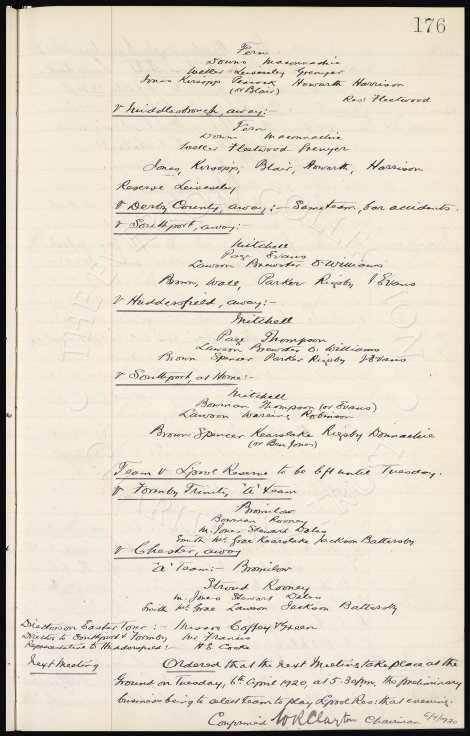 176
Fern
Downs Maconnachie
Weller Leivesley Grenyer
Jones Kirsopp Peacock Howarth Harrison
(or Blair)
Res: Fleetwood
v Middlesbrough, away:-
Fern
Downs Maconnachie
Weller Fleetwood Grenyer
Jones, Kirsopp, Blair, Howarth, Harrison
Reserve Leivesley
v Derby County, away:- Same team, bar accidents.
v Southport, away:-
Mitchell
Page Evans
Lawson Brewster D. Williams
Brown, Wall, Parker Rigsby J Evans
v Huddersfield, away:-
Mitchell
Page Thompson
Lawson Brewster D. Williams
Brown Spencer Parker Rigsby J Evans
v Southport, at Home:-
Mitchell
Bowman Thompson (or Evans)
Lawson Wareing Robinson
Brown Spencer Kearslake Rigsby Donnachie
(or Ben Jones)
Team v Lpool Reserve to be left until Tuesday.
v Formby Trinity "A" team
Bromilow
Bowman Rooney
W. Jones Stewart Daley
Smith McGrae Kearslake Jackson Battersby
v Chester, away
"A" Team:- Bromilow
Stroud Rooney
W. Jones Stewart Daley
Smith McGrae Lawson Jackson Battersby
Directors on Easter Tour:- Messrs Coffey & Green
Director to Southport & Formby Mr Francis
Representative to Huddersfield:- W E Cooke
Next Meeting Ordered that the next Meeting take place at the
Ground on Tuesday, 6th April 1920, at 5-30pm, the preliminary
business being to select team to play Lpool Res: that evening.
Confirmed W R Clayton Chairman 6/4/1920